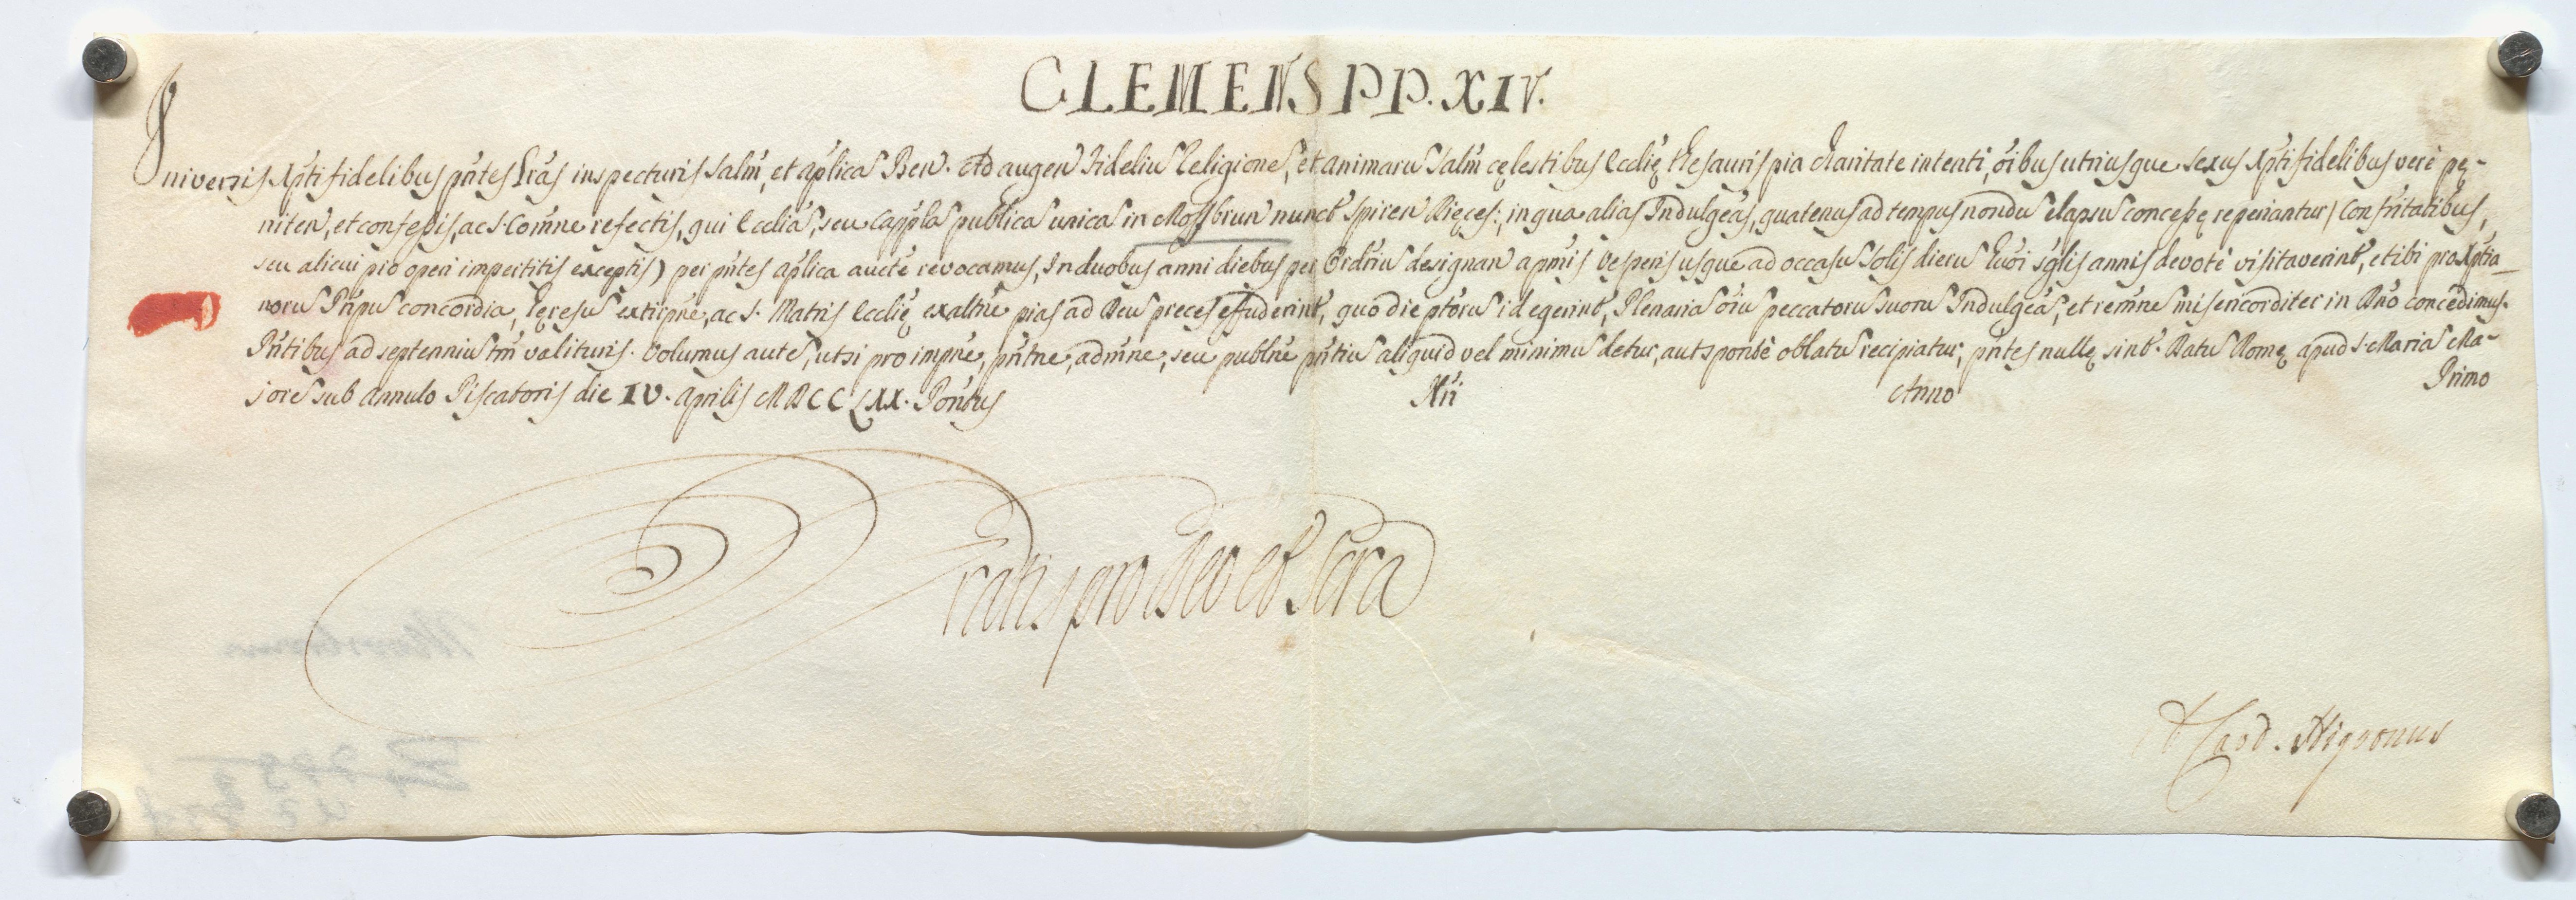 CLEMENS PP. XIV.
Universis Xpti fidelibus pntes Lras inspecturis salm, et aplica Ben. Ad augen fideliu Religione, et animaru salm cęlestibus Ecclię thesauris pia Charitate intenti, oibus utriusque sexus Xpti fidelibus verè pę-
niten, et confessis, ac S. Comne refectis, qui Ecclia, seu Cappla publica unica in Mossbrun nunct Spiren Dięces: in qua alias Indulgeas, quatenus ad tempus nondu elapsu concessę reperiantur (Confritatibus,
seu alicui pio operi impertitis exceptis) per pntes aplica aucte revocamus, In duobus anni diebus per Ordriu designan a pmis vesperis usque ad occasu Solis dieru hmoi sglis annis devotè visitaverint, et ibi pro Xptia-
noru Pripu concordia, hęresu extirpne, ac S. Matris Ecclię exaltne pias ad Deu preces effuderint, quo die ptoru id egerint, Plenaria oiu peccatoru suoru Indulgea, et remne misericorditer in Dno concedimus.
Pntibus ad septenniu tm valituris. Volumus aute, ut si pro impne, pntne, admne, seu publne pntiu aliquid vel minimu detur, aut sponte oblatu recipiatur, pntes nullę sint. Datu Romę apud S. Maria Ma-
jore sub Annulo Piscatoris die IV. Aprilis MDCCLXX. Pontus Nri Anno Primo
Gratis pro Deo et Scra
A Card. Nigronus